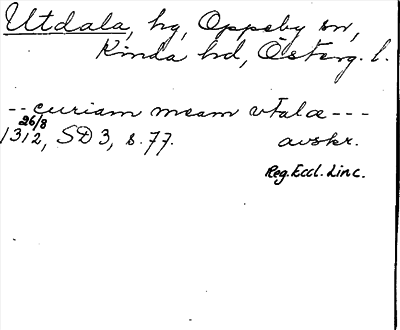 Utdala, hg, Oppeby sn,
Kinda hd, Österg. l.
-- curiam meam vtalæ ---
26/8
1312, SD 3, s. 77. avskr.
Reg. Eccl. Linc.